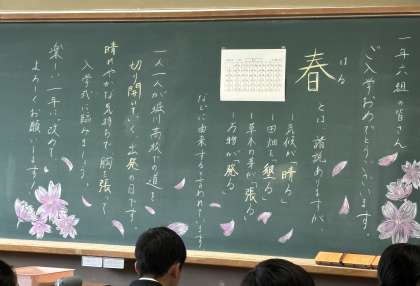 一年六組の皆さん
ご入学おめでとうございます。
はる
春とは 諸説ありますが、
―気候が「晴る」
―田畑を「墾る」
―草木の芽が「張る」
―万物が「発る」
などに由来すると言われています
一人一人が堀川高校での道を
切り開いていく出発の日です。
晴れやかな気持ちで胸を張って
入学式に臨みましょう。
楽しい一年に、改めて
よろしくお願いします!